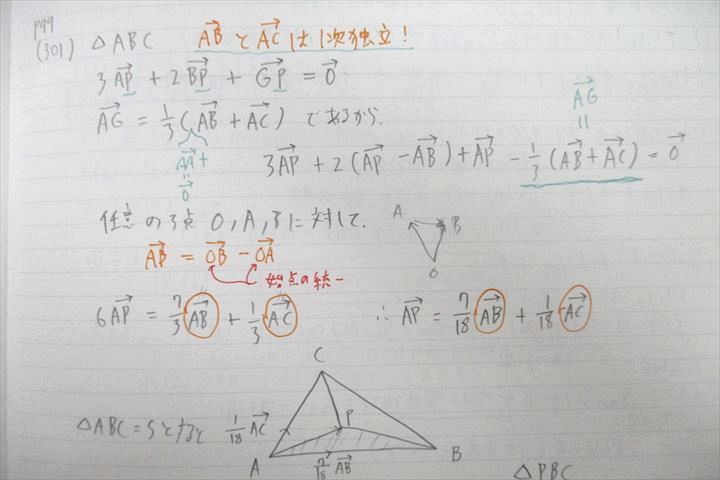 P99
(301) △ABC $\overrightarrow{AB}$ と $\overrightarrow{AC}$ は1次独立!
$3\overrightarrow{AP} + 2\overrightarrow{BP} + \overrightarrow{GP} = \vec{0}$
$\overrightarrow{AG} = \frac{1}{3}(\overrightarrow{AB} + \overrightarrow{AC})$ であるから.
$\overrightarrow{AG}$
=
$\overrightarrow{AA}+$
=
$\vec{0}$
$3\overrightarrow{AP} + 2(\overrightarrow{AP} - \overrightarrow{AB}) + \overrightarrow{AP} - \frac{1}{3}(\overrightarrow{AB} + \overrightarrow{AC}) = \vec{0}$
任意の3点 O, A, Bに対して.
A B
O
$\overrightarrow{AB} = \overrightarrow{OB} - \overrightarrow{OA}$
始点の統一
$6\overrightarrow{AP} = \frac{7}{3}\overrightarrow{AB} + \frac{1}{3}\overrightarrow{AC}$ ∴ $\overrightarrow{AP} = \frac{7}{18}\overrightarrow{AB} + \frac{1}{18}\overrightarrow{AC}$
C
△ABC = Sとすると $\frac{1}{18}\overrightarrow{AC}$ P
A $\frac{7}{18}\overrightarrow{AB}$ B
△PBC